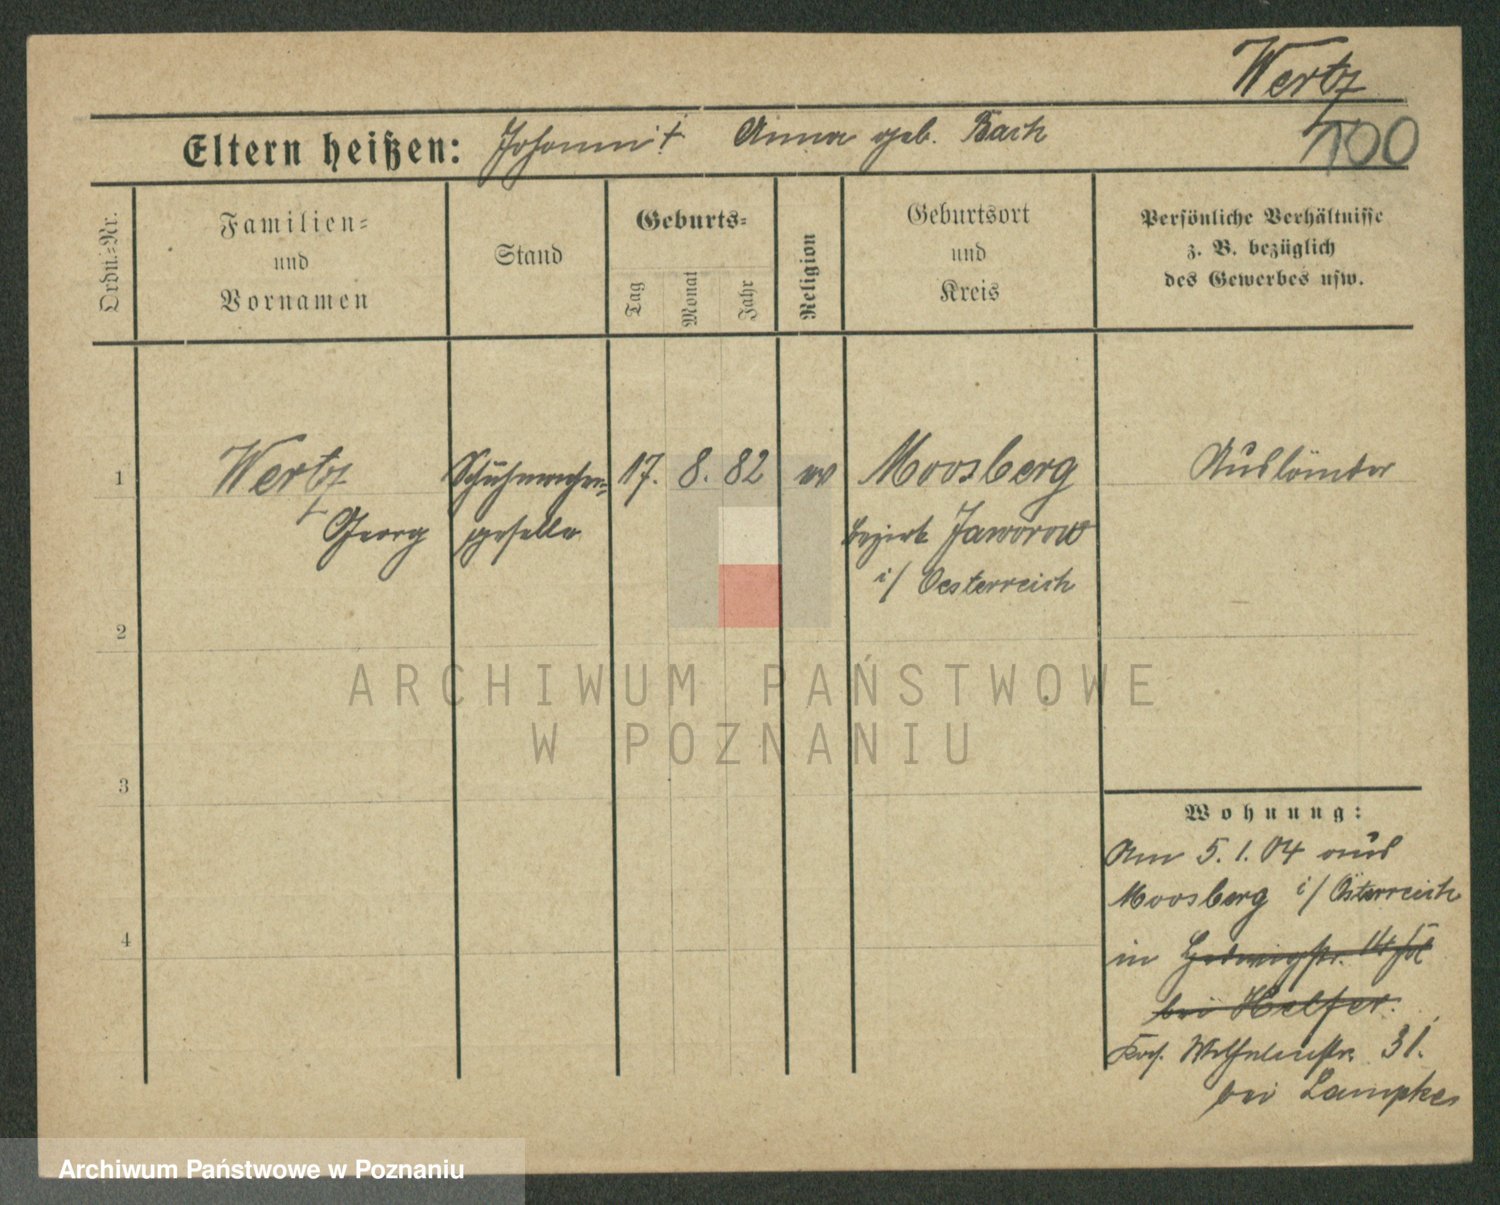 Wertz
100
Eltern heißen: Johann † Anna geb. Bach
Ordn.-Nr.
Familien-
und
Vornamen
Stand
Geburts-
Tag
Monat
Jahr
Religion
Geburtsort
und
Kreis
Persönliche Verhältnisse
z. B. bezüglich
des Gewerbes usw.
1
Wertz
Georg
Schuhmacher-
geselle
17. 8. 82
ev
Moosberg
Bezirk Jaworow
i/ Oesterreich
Ausländer
2
3
4
Wohnung:
Am 5.1.04 aus
Moosberg i/ Österreich
in Hedwigstr. 14
bei Helfer.
Wilhelmstr. 31.
bei Lampke
ARCHIWUM PAŃSTWOWE
W POZNANIU
Archiwum Państwowe w Poznaniu